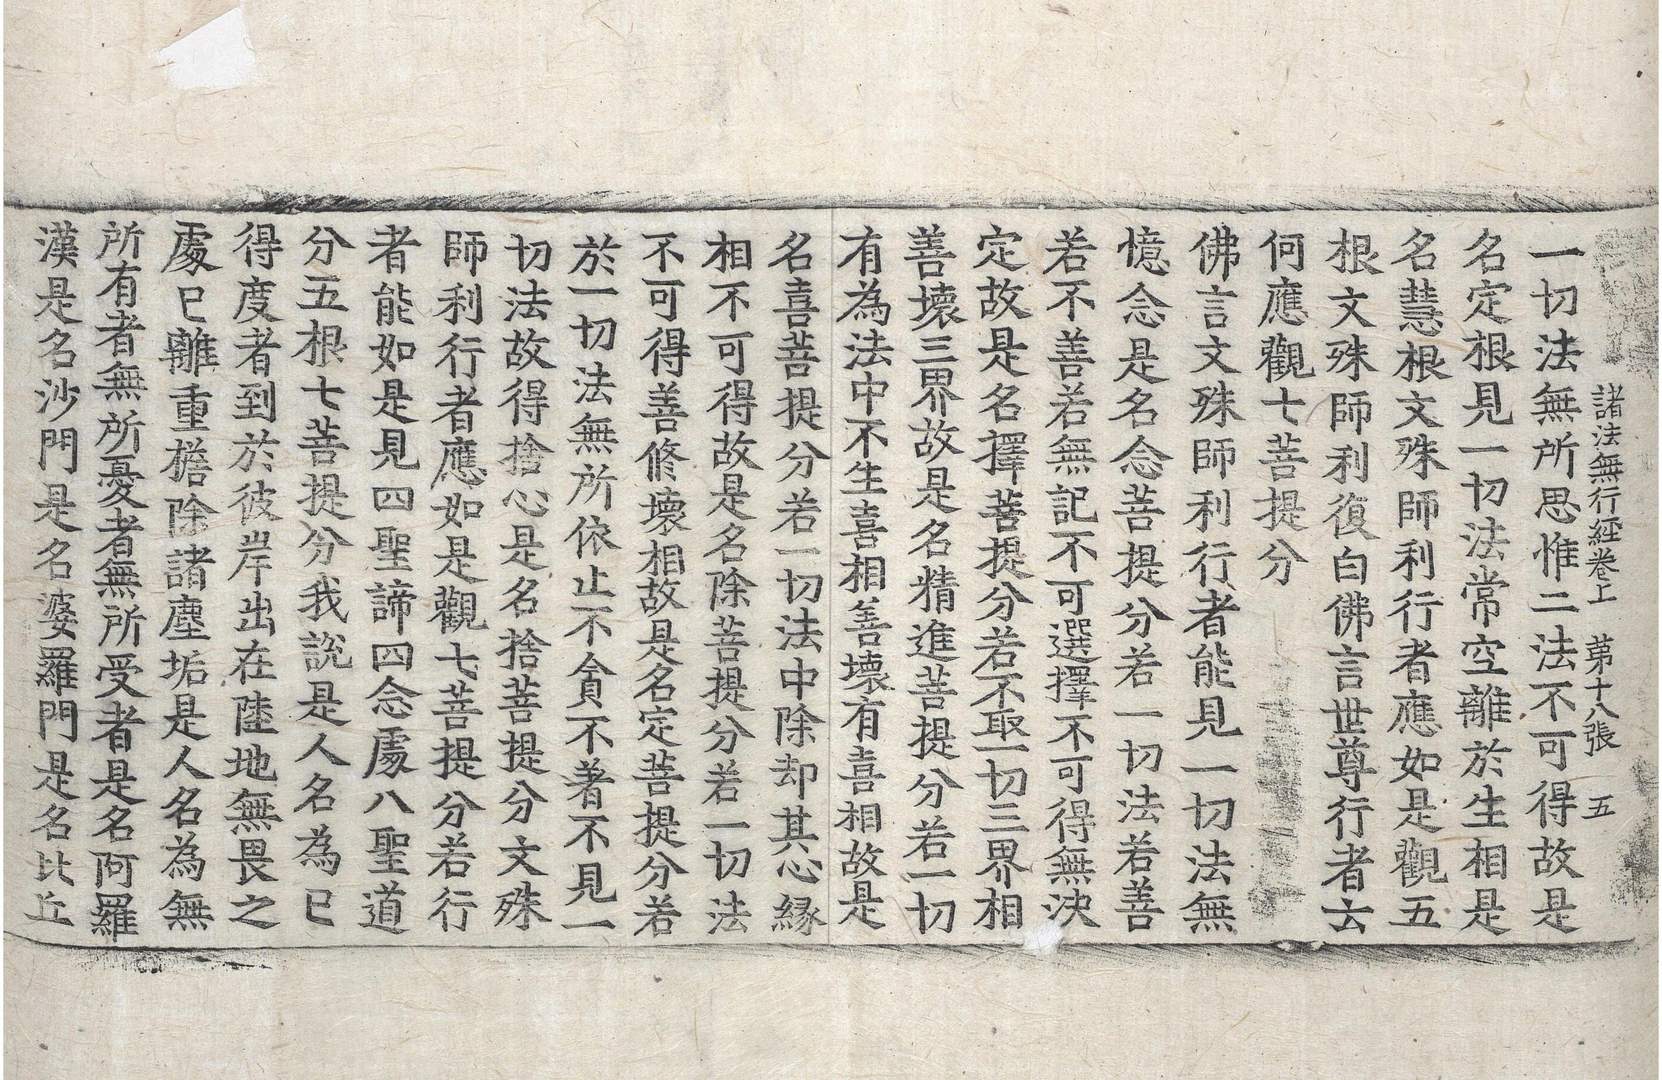 諸法無行經卷上　第十八張　五
一切法無所思惟二法不可得故是
名定根見一切法常空離於生相是
名慧根文殊師利行者應如是觀五
根文殊師利復白佛言世尊行者云
何應觀七菩提分
佛言文殊師利行者能見一切法無
憶念是名念菩提分若一切法若善
若不善若無記不可選擇不可得無決
定故是名擇菩提分若不取一切三界相
善壞三界故是名精進菩提分若一切
有為法中不生喜相善壞有喜相故是
名喜菩提分若一切法中除却其心緣
相不可得故是名除菩提分若一切法
不可得善修壞相故是名定菩提分若
於一切法無所依止不貪不著不見一
切法故得捨心是名捨菩提分文殊
師利行者應如是觀七菩提分若行
者能如是見四聖諦四念處八聖道
分五根七菩提分我說是人名為已
得度者到於彼岸出在陸地無畏之
處已離重擔除諸塵垢是人名為無
所有者無所憂者無所受者是名阿羅
漢是名沙門是名婆羅門是名比丘